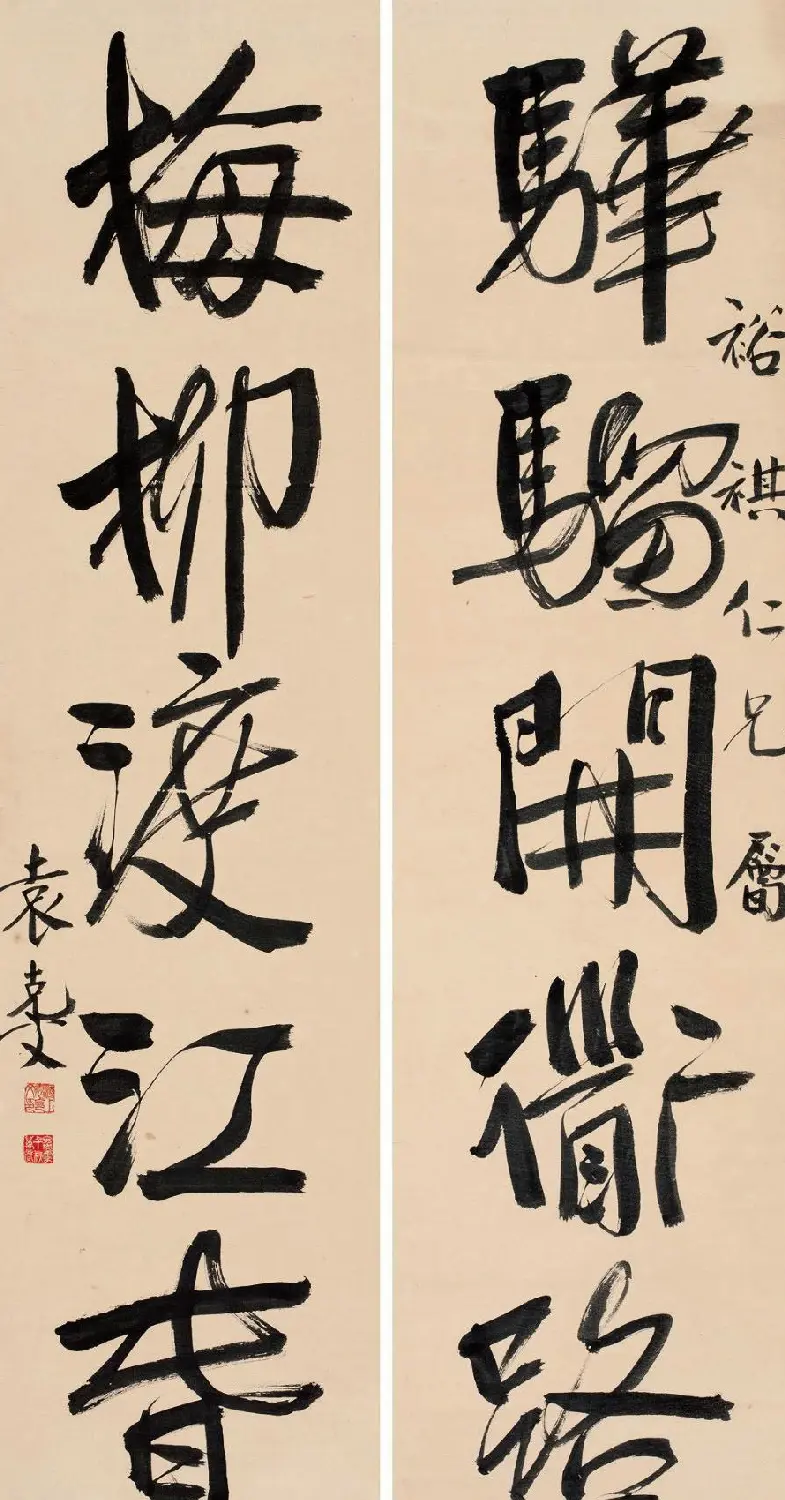 裕祺仁兄屬
驊騮開衟路
梅柳渡江春
袁克文